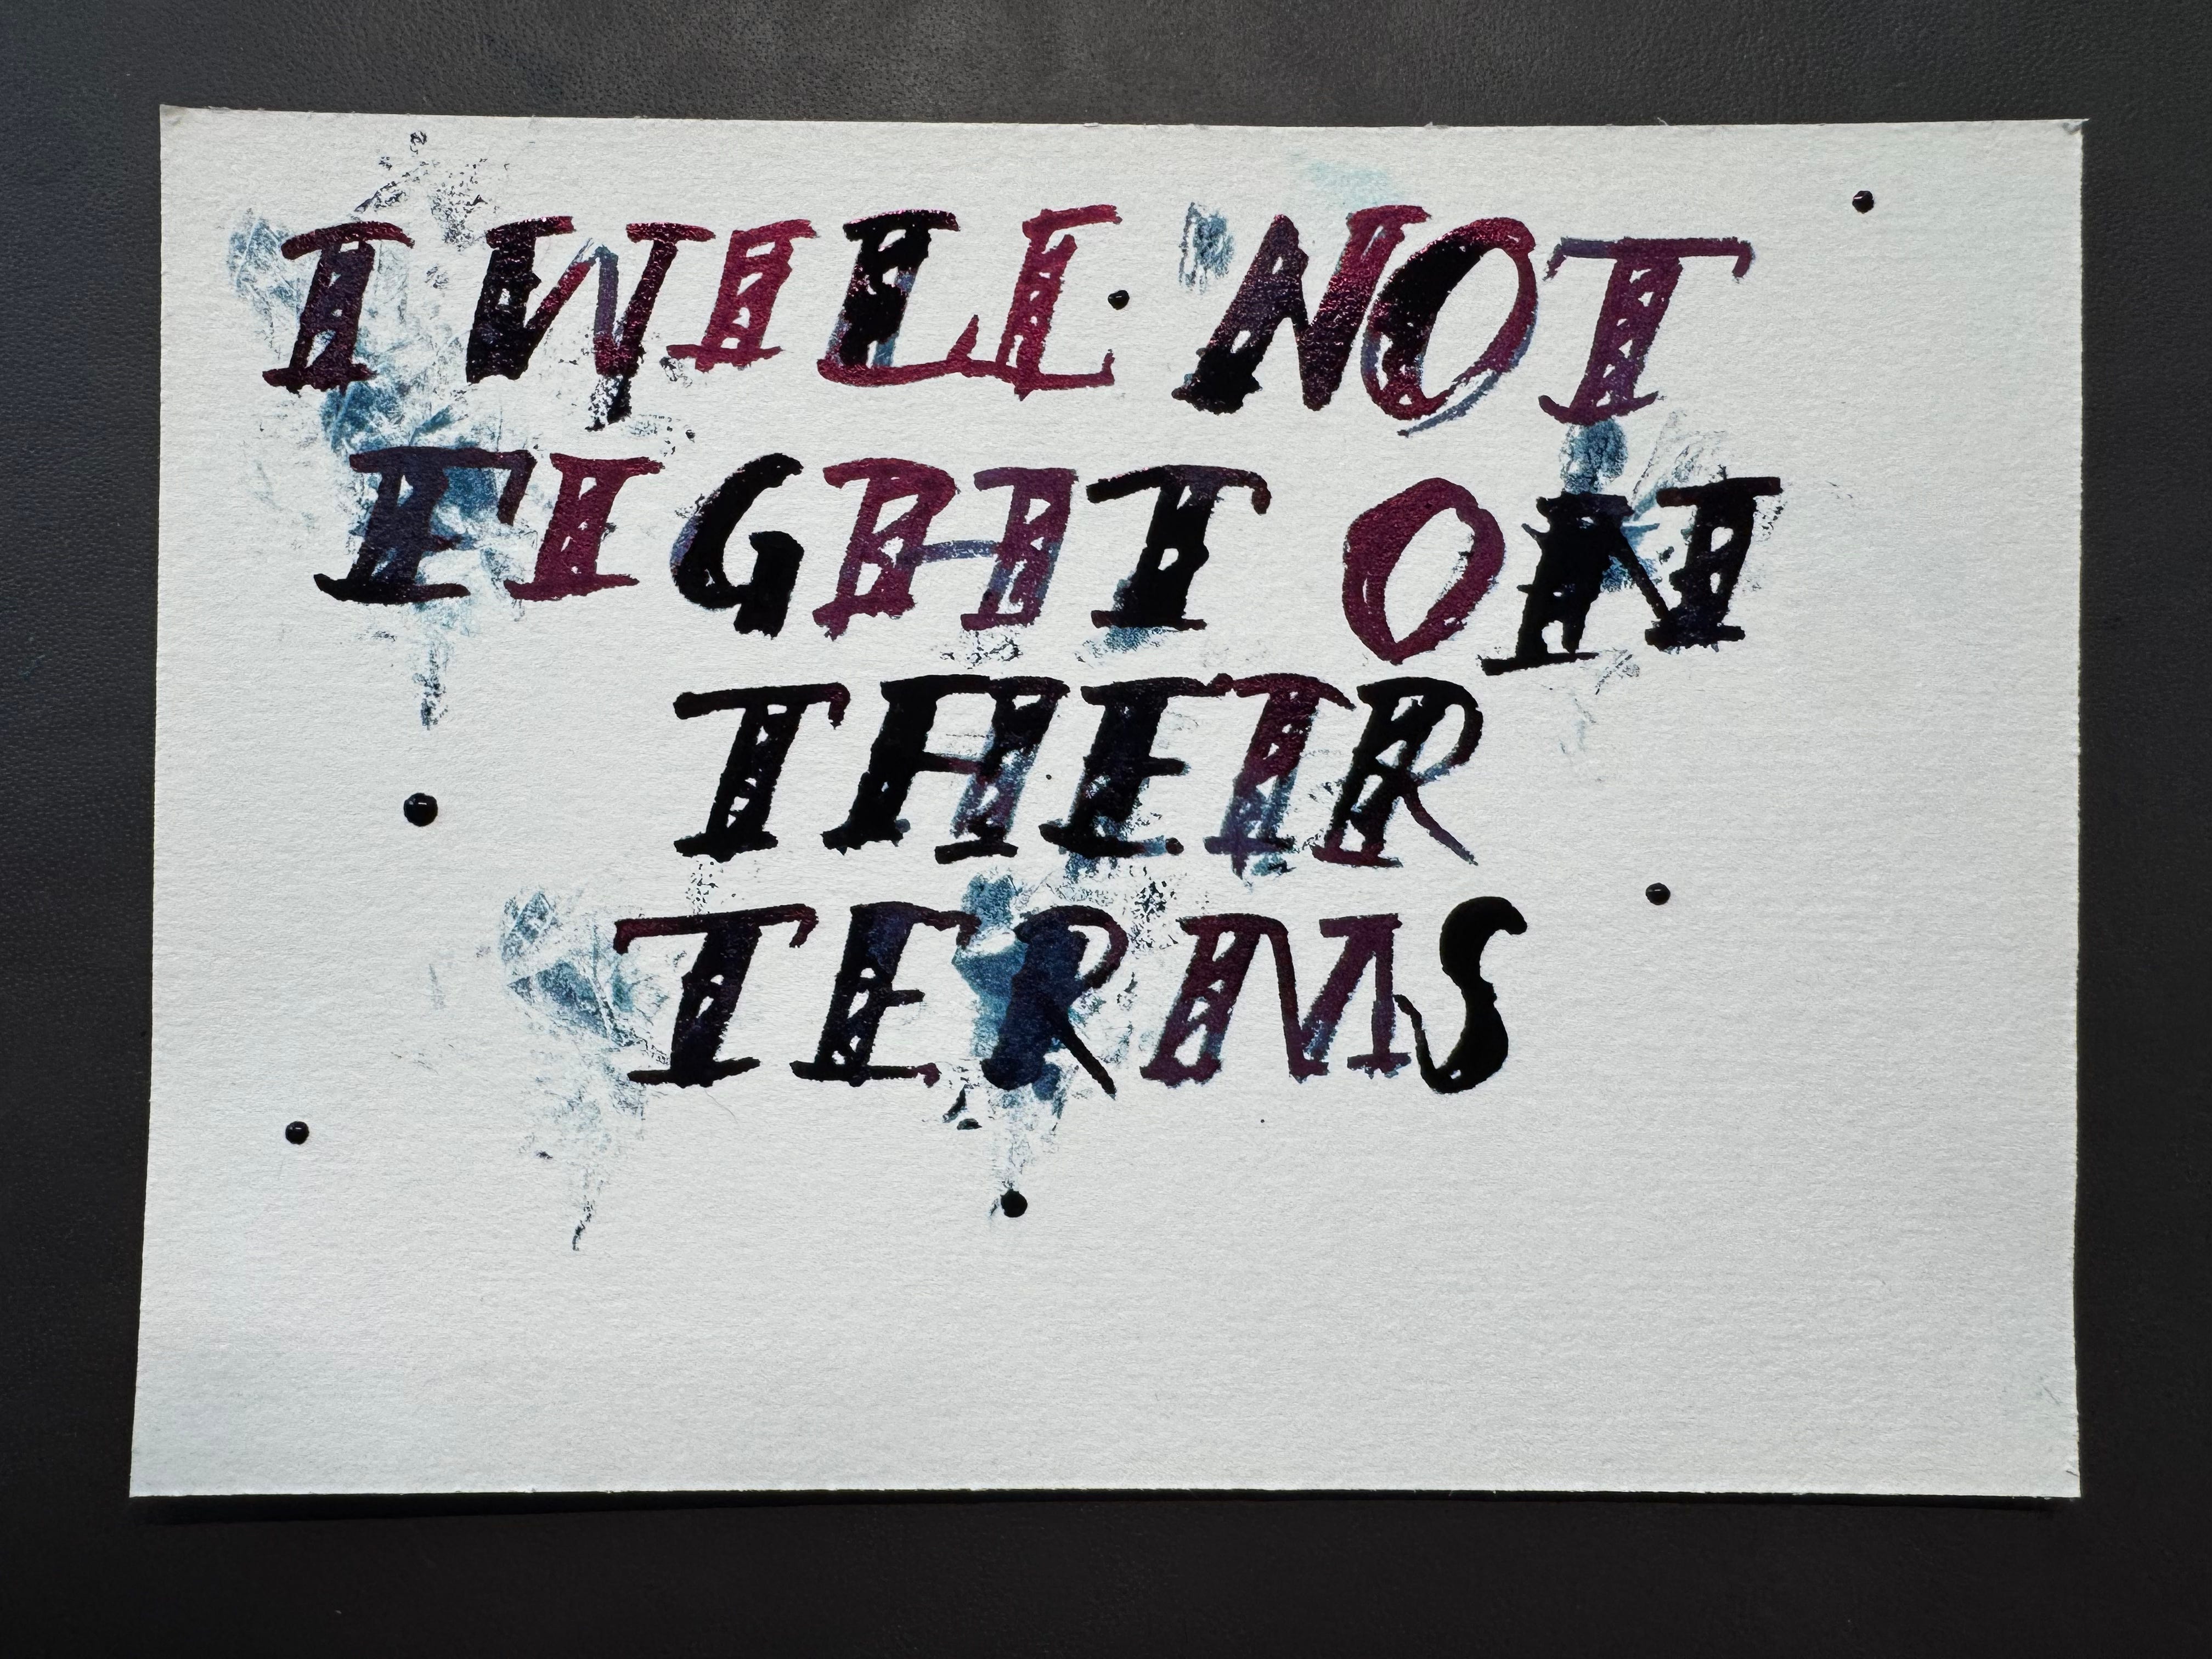 I WILL NOT
FIGHT ON
THEIR
TERMS